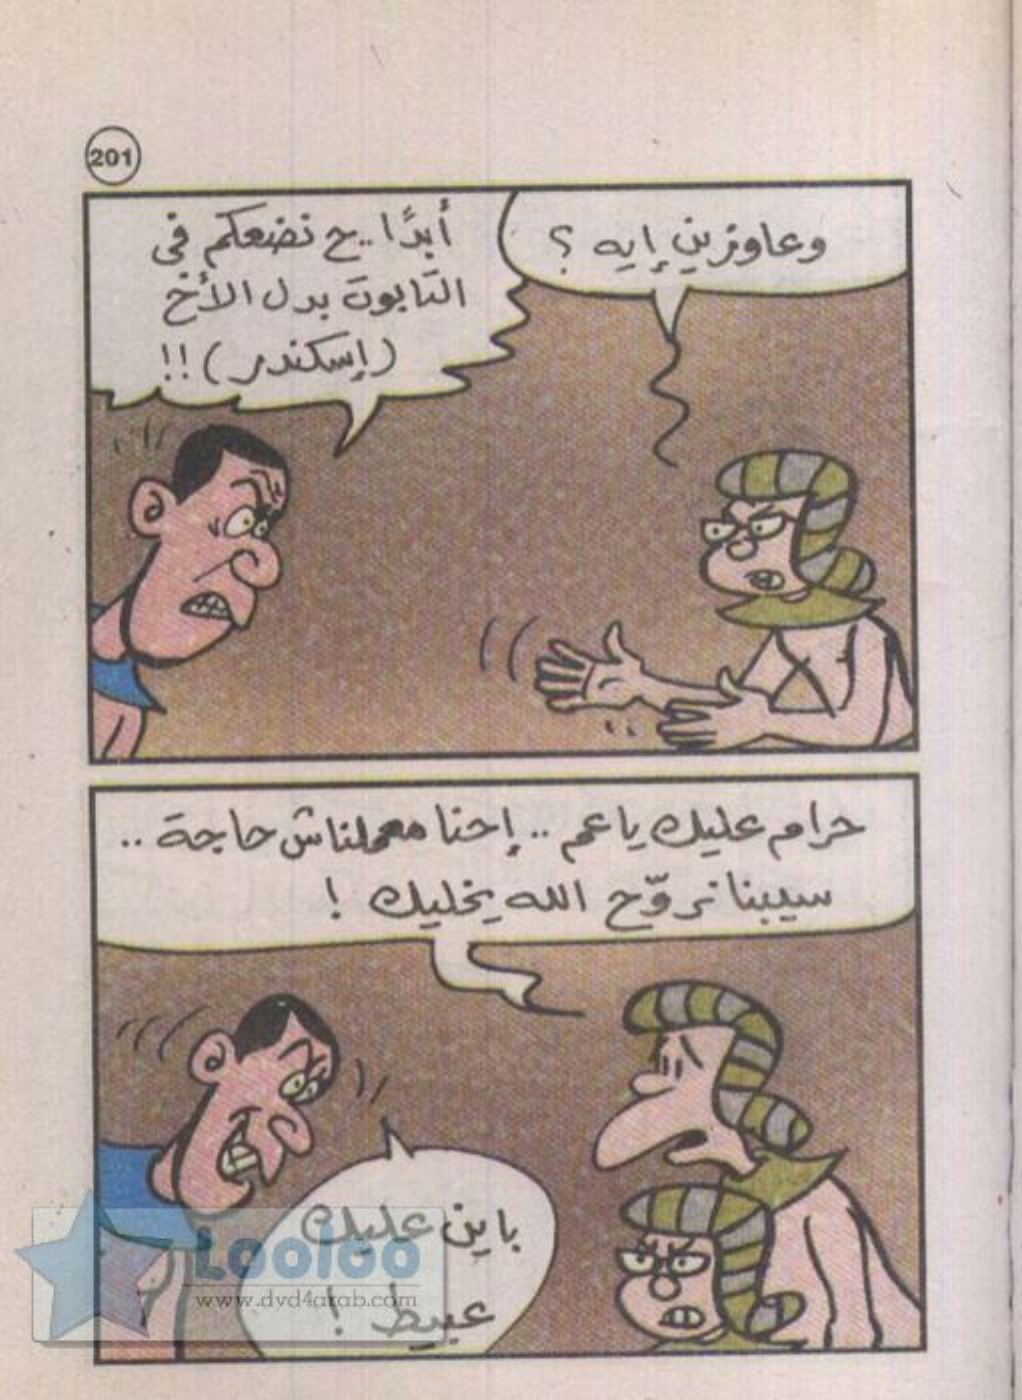 201
وعاوزين إيه ؟
أبدًا.. ح نضعكم فى
التابوت بدل الأخ
(إسكندر) !!
حرام عليك يا عم .. إحنا معملناش حاجة ..
سيبنا نروّح الله يخليك !
باين عليك
عبيط !
LOOLOO
www.dvd4arab.com